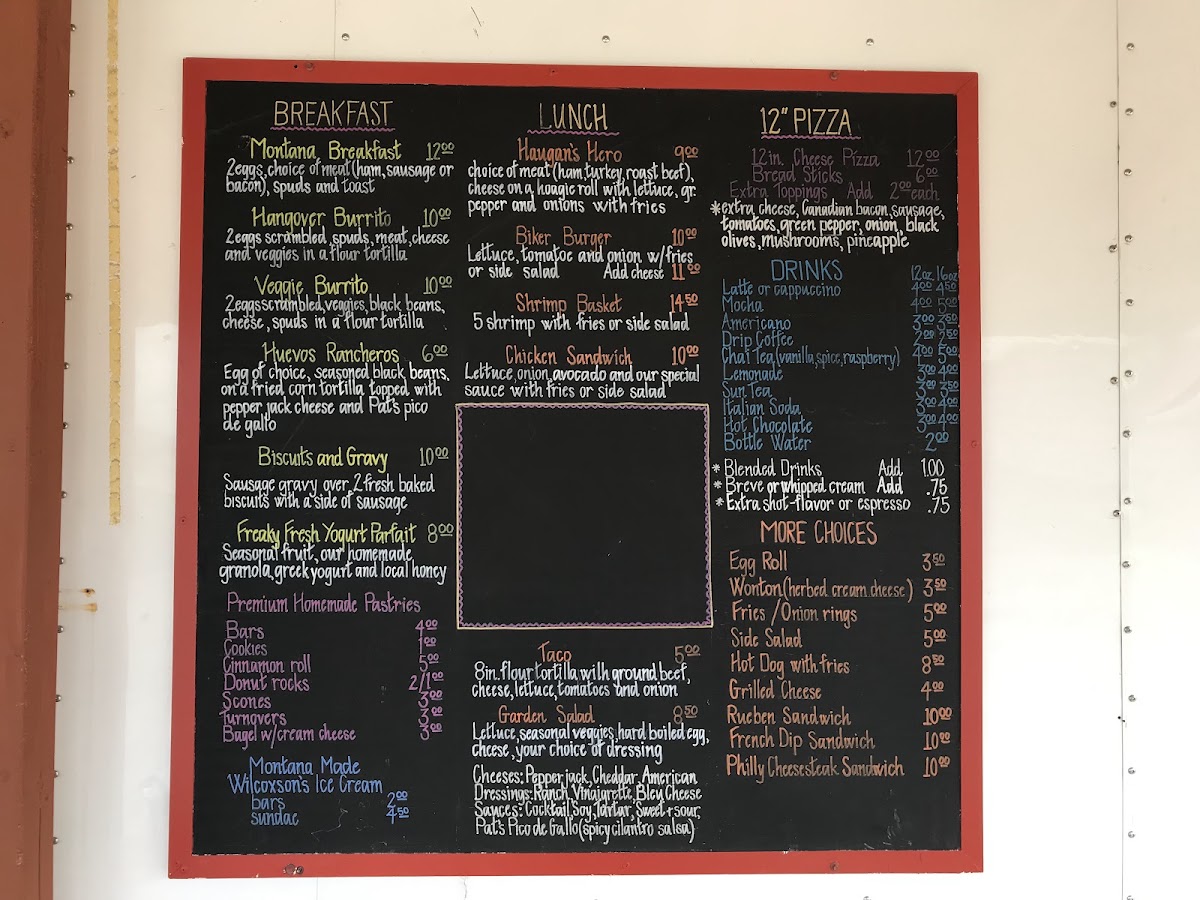 BREAKFAST
Montana Breakfast 12.00
2 eggs, choice of meat (ham, sausage or
bacon), spuds and toast
Hangover Burrito 10.00
2 eggs scrambled, spuds, meat, cheese
and veggies in a flour tortilla
Veggie Burrito 10.00
2 eggs scrambled, veggies, black beans,
cheese, spuds in a flour tortilla
Huevos Rancheros 6.00
Egg of choice, seasoned black beans,
on a fried corn tortilla topped with
pepper jack cheese and Pat's pico
de gallo
Biscuits and Gravy 10.00
Sausage gravy over 2 fresh baked
biscuits with a side of sausage
Freaky Fresh Yogurt Parfait 8.00
Seasonal fruit, our homemade
granola, greek yogurt and local honey
Premium Homemade Pastries
Bars 4.00
Cookies 1.00
Cinnamon roll 5.00
Donut rocks 2/1.00
Scones 3.00
Turnovers 3.00
Bagel w/cream cheese 3.00
Montana Made
Wilcoxson's Ice Cream
bars 2.00
sundae 4.50
LUNCH
Haugan's Hero 9.00
choice of meat (ham, turkey, roast beef),
cheese on a hoagie roll with lettuce, gr.
pepper and onions with fries
Biker Burger 10.00
Lettuce, tomatoe and onion w/fries
or side salad Add cheese 11.00
Shrimp Basket 14.50
5 shrimp with fries or side salad
Chicken Sandwich 10.00
Lettuce, onion, avocado and our special
sauce with fries or side salad
Taco 5.00
8in. flour tortilla with ground beef,
cheese, lettuce, tomatoes and onion
Garden Salad 8.50
Lettuce, seasonal veggies, hard boiled egg,
cheese, your choice of dressing
Cheeses: Pepperjack, Cheddar, American
Dressings: Ranch, Vinaigrette, Bleu Cheese
Sauces: Cocktail, Soy, Tartar, Sweet + sour,
Pat's Pico de Gallo (spicy cilantro salsa)
12" PIZZA
12 in. Cheese Pizza 12.00
Bread Sticks 6.00
Extra Toppings Add 2.00 each
*extra cheese, Canadian bacon, sausage,
tomatoes, green pepper, onion, black
olives, mushrooms, pineapple
DRINKS 12oz. 16oz
Latte or cappuccino 4.00 4.50
Mocha 4.00 5.00
Americano 3.00 3.50
Drip Coffee 2.00 2.50
Chai Tea (vanilla, spice, raspberry) 4.00 5.00
Lemonade 3.00 4.00
Sun Tea 3.00 3.50
Italian Soda 3.00 4.00
Hot Chocolate 3.00 4.00
Bottle Water 2.00
* Blended Drinks Add 1.00
* Breve or whipped cream Add .75
* Extra shot-flavor or espresso .75
MORE CHOICES
Egg Roll 3.50
Wonton (herbed cream cheese) 3.50
Fries / Onion rings 5.00
Side Salad 5.00
Hot Dog with fries 8.50
Grilled Cheese 4.00
Rueben Sandwich 10.00
French Dip Sandwich 10.00
Philly Cheesesteak Sandwich 10.00